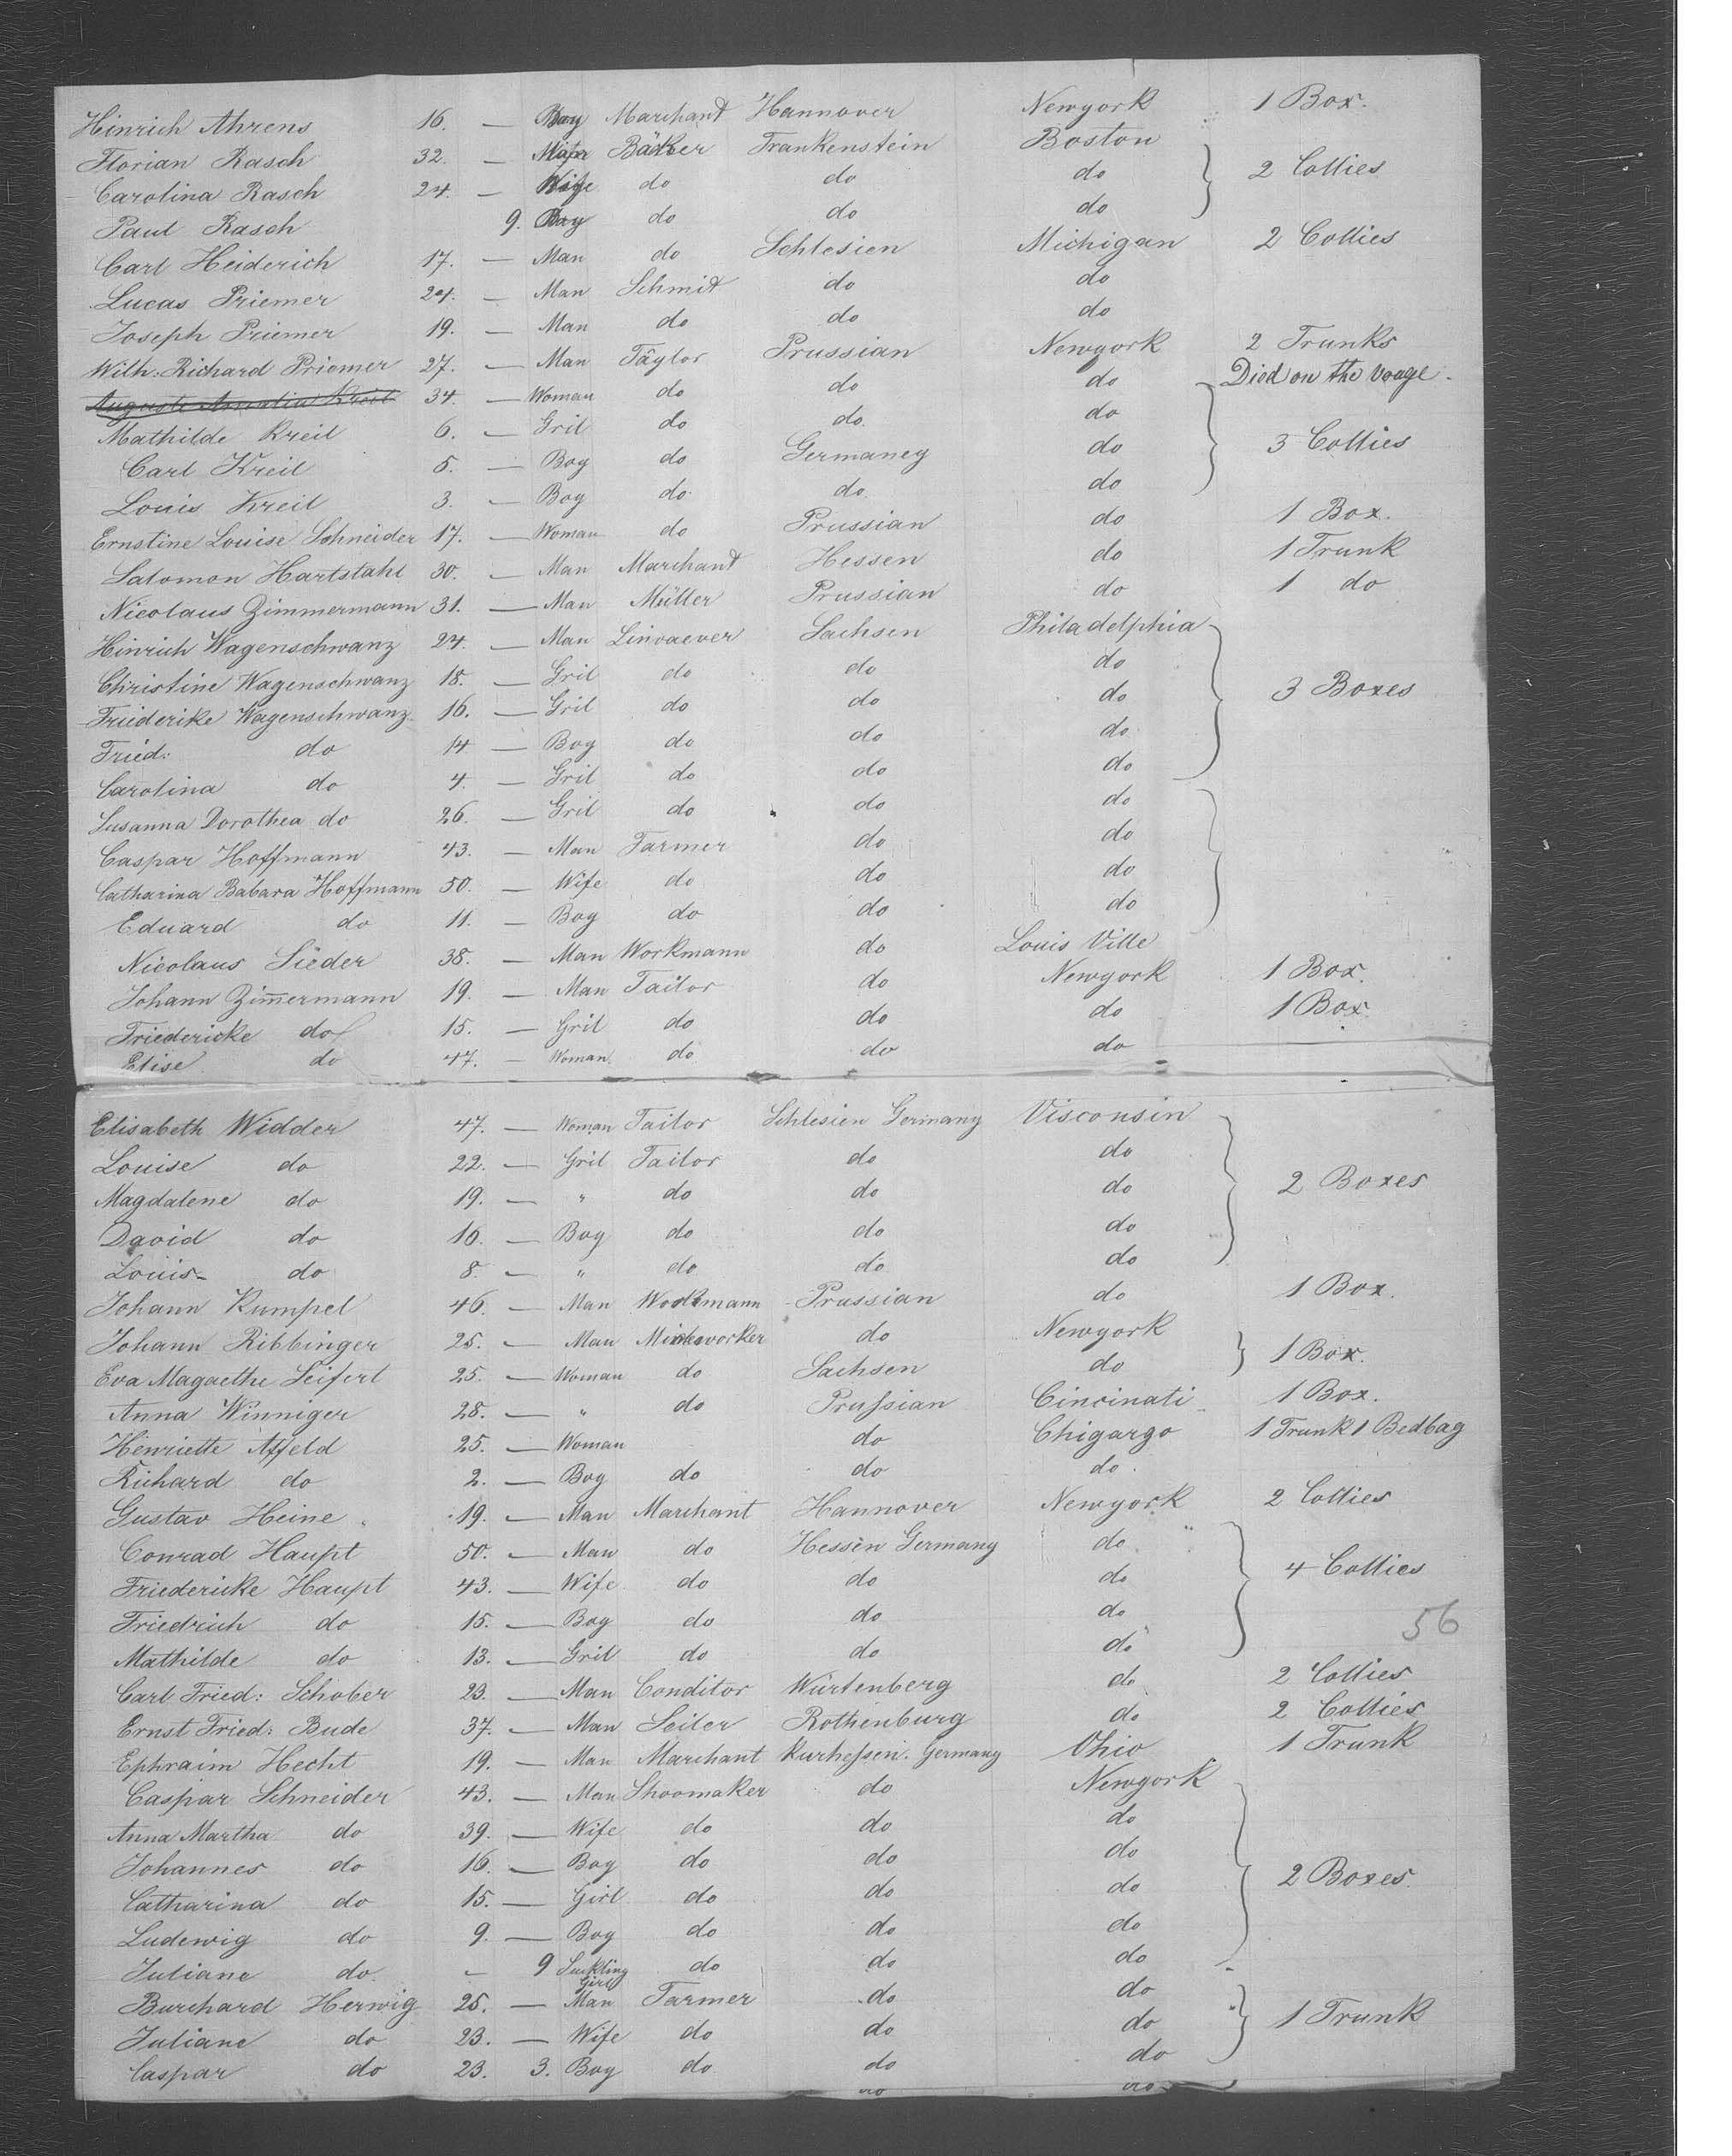 Hinrich Ahrens 16. — Boy Marchant Hannover Newyork 1 Box.
Florian Rasch 32. — Man Bäker Frankenstein Boston
Carolina Rasch 24. — Wife do do do 2 Collies
Paul Rasch 9. Boy do do do
Carl Heiderich 17. — Man do Schlesien Michigan 2 Collies
Lucas Priemer 24. — Man Schmid do do
Joseph Priemer 19. — Man do do do
Wilh: Richard Priemer 27. — Man Täylor Prussian Newyork 2 Trunks
Auguste Amalia Kreil 34. — Woman do do do Died on the Voage.
Mathilde Kreil 6. — Gril do do. do
Carl Kreil 5. — Boy do Germaney do 3 Collies
Louis Kreil 3. — Boy do do. do
Ernstine Louise Schneider 17. — Woman do Prussian do 1 Box.
Salomon Hartstahl 30. — Man Marchant Hessen do 1 Trunk
Nicolaus Zimmermann 31. — Man Müller Prussian do 1 do
Hinrich Wagenschwanz 24. — Man Linvaever Sachsen Philadelphia
Christine Wagenschwanz 18. — Gril do do do
Friederike Wagenschwanz 16. — Gril do do do 3 Boxes
Fried: do 14 — Boy do do do
Carolina do 4. — Gril do do do
Susanna Dorothea do 26. — Gril do do do
Caspar Hoffmann 43. — Man Farmer do do
Catharina Babara Hoffmann 50. — Wife do do do
Eduard do 11. — Boy do do do
Nicolaus Sieder 38. — Man Workmann do Louis Ville
Johann Zim̄ermann 19. — Man Tailor do Newyork 1 Box.
Friedericke do 15. — Gril do do do 1 Box.
Elise do 47. — Woman do do do
Elisabeth Widder 47. — Woman Tailor Schlesien Germany Visconsin
Louise do 22. — Gril Tailor do do
Magdalene do 19. — " do do do 2 Boxes
David do 16. — Boy do do do
Louis do 8. — " do do do
Johann Kumpel 46. — Man Workmann Prussian do 1 Box.
Johann Ribbinger 25. — Man do Newyork
Eva Magaethe Seifert 25. — Woman do Sachsen do 1 Box.
Anna Winniger 28. — " do Prussian Cincinati 1 Box.
Henriette Affeld 25. — Woman do Chigargo 1 Trunk 1 Bedbag
Richard do 2. — Boy do do do.
Gustav Heine 19. — Man Marchant Hannover Newyork 2 Collies
Conrad Haupt 50. — Man do Hessen Germany do
Friedericke Haupt 43. — Wife do do do 4 Collies
Friedrich do 15. — Boy do do do
56
Mathilde do 13. — Gril do do do
Carl Fried: Schober 23. — Man Conditor Würtenberg do 2 Collies
Ernst Fried: Bude 37. — Man Seiler Rothenburg do 2 Collies
Ephraim Hecht 19. — Man Marchant Kurhessen. Germany Ohio 1 Trunk
Caspar Schneider 43. — Man Shoomaker do Newyork
Anna Martha do 39. — Wife do do do
Johannes do 16. — Boy do do do
Catharina do 15. — Girl do do do 2 Boxes.
Ludewig do 9. — Boy do do do
Juliane do. — 9 Suckling Girl do do do
Burchard Herwig 25. — Man Farmer do do
Juliane do 23. — Wife do do do 1 Trunk
Caspar do 23. 3. Boy do do do
do do